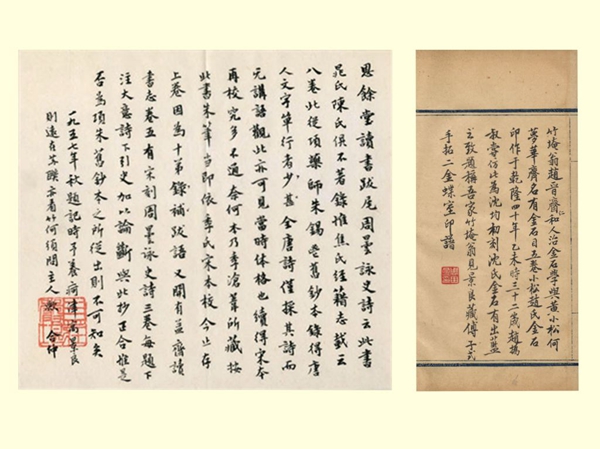 恩餘堂讀書跋尾周曇詠史詩云此書
晁氏陳氏俱不著錄惟焦氏經籍志載云
八卷此從項藥師朱錫鬯舊鈔本錄得唐
人文字單行者少甚全唐詩僅採其詩而
元講語觀此亦可見當時體格也續得宋本
再校究多不通奈何本乃季滄葦所藏按
此書朱筆當即依季氏宋本校今止存
上卷因為十弟錄補跋語又聞有益齋讀
書志卷五有宋刻周曇詠史詩三卷每題下
注大意詩下引史加以論斷與此抄正合惟是
否為項朱舊鈔本之所從出則不可知矣
一九五七年秋題記時予養疴津寓景良
則遠在蘇聯 看竹何須問主人歟
竹埯翁趙晉齋和人治金石學與黃小松何
夢華齊名有金石目五卷小松趙氏金石
印作于乾隆四十年乙未時三十二歲趙撝
叔嘗仿此為沈均初刻沈氏金石有出藍
之致題稱吾家竹埯翁見景良藏傅子式
手拓二金蝶室印譜